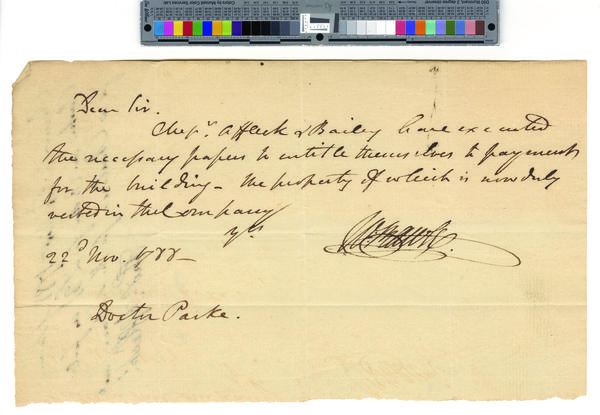 Dear Sir.
Messrs. Affleck & Bailey have executed
the necessary papers to entitle themselves to payments
for the building – the property of which is now duly
vested in the Company
Yrs
22d Nov. 1788 –
Doctor Parke.